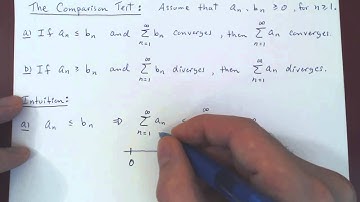 The Comparison Test: Assume that aₙ, bₙ ≥ 0, for n ≥ 1.
a) If aₙ ≤ bₙ and ∑_{n=1}^{∞} bₙ converges, then ∑_{n=1}^{∞} aₙ converges.
b) If aₙ ≥ bₙ and ∑_{n=1}^{∞} bₙ diverges, then ∑_{n=1}^{∞} aₙ diverges.
Intuition:
a) aₙ ≤ bₙ ⇒ ∑_{n=1}^{∞} aₙ ≤ ∞
0